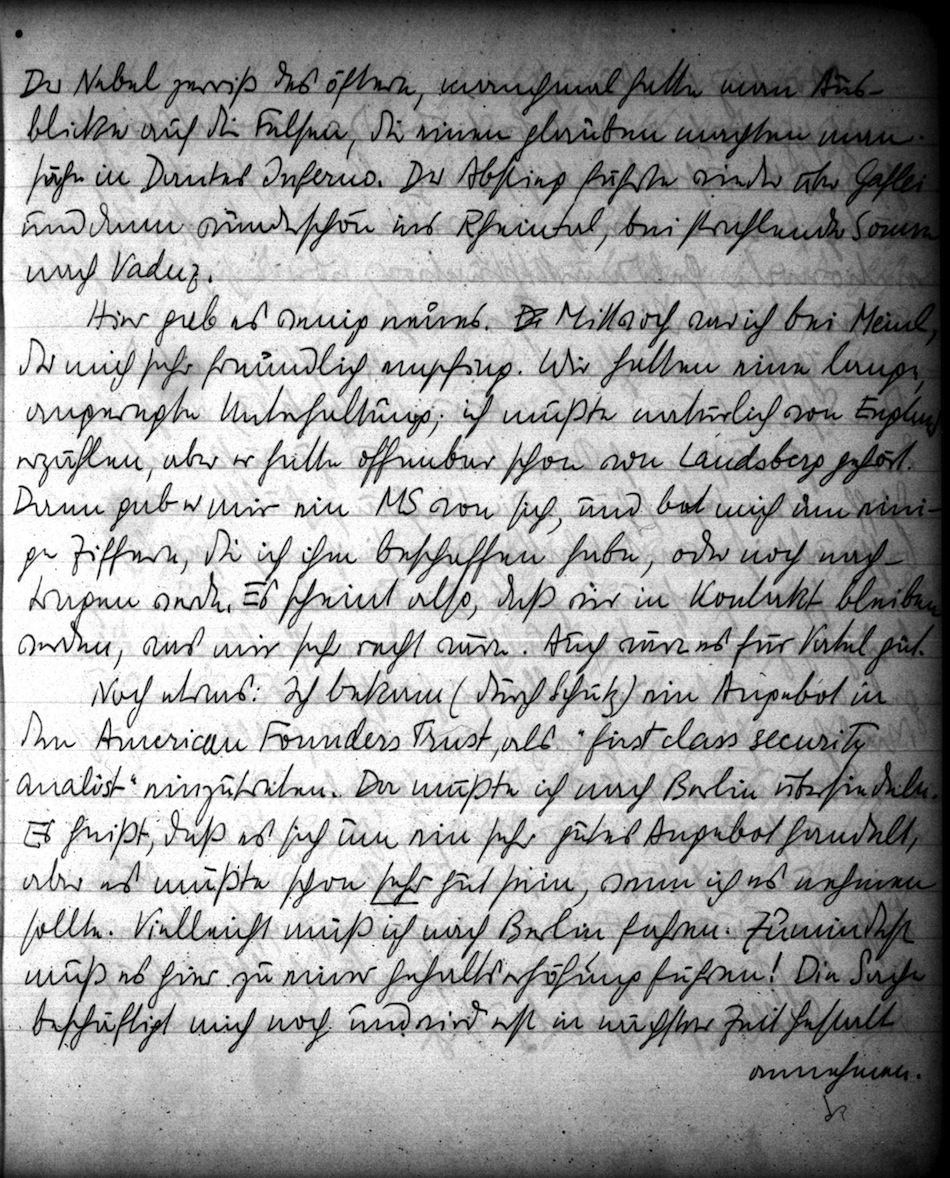 Der Nebel zerriß des öftern, manchmal hatte man Aus-
blicke auf die Felsen, die einen glauben machten man
sähe in Dantes Inferno. Der Abstieg führte wieder über Gaflei
und dann wunderschön ins Rheintal, bei strahlender Sonne
nach Vaduz.
Hier gab es wenig neues. Mittwoch war ich bei Meinl,
der mich sehr freundlich empfing. Wir hatten eine lange,
angeregte Unterhaltung; ich mußte natürlich von England
erzählen, aber er hatte offenbar schon von Landsberg gehört.
Dann gab er mir ein MS von sich, und bat mich um eini-
ge Ziffern, die ich ihm beschaffen habe, oder noch nach-
tragen werde. Es scheint also, daß wir in Kontakt bleiben
werden, was mir sehr recht wäre. Auch wäre es für gut.
Noch etwas: Ich bekam (durch Schütz) ein Angebot in
den American Founders Trust, als "first class security
analist" einzutreten. Da müßte ich nach Berlin übersiedeln.
Es heißt, daß es sich um ein sehr gutes Angebot handelt,
aber es müßte schon sehr gut sein, wenn ich es nehmen
sollte. Vielleicht muß ich nach Berlin fahren. Zumindest
muß es hier zu einer Gehaltserhöhung führen! Die Sache
beschäftigt mich noch und wird erst in nächster Zeit Gestalt
annehmen.